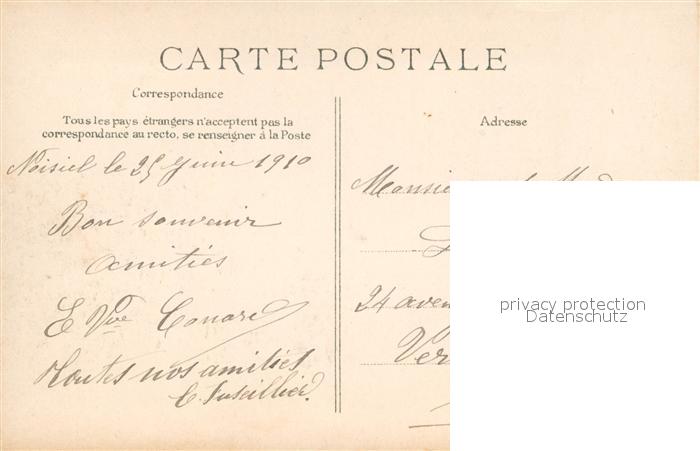 CARTE POSTALE
Correspondance
Tous les pays étrangers n'acceptent pas la
correspondance au recto, se renseigner à la Poste
Noisiel le 25 Juin 1910
Bon souvenir
amitiés
E Vve Conard
Toutes nos amitiés
Adresse
24 aven
Ver
privacy protection
Datenschutz